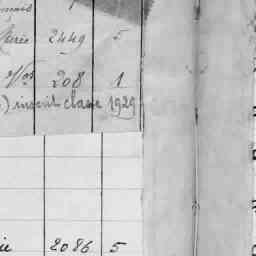 2449 5
Nos 208 1
) inscrit classe 1929
2086 5